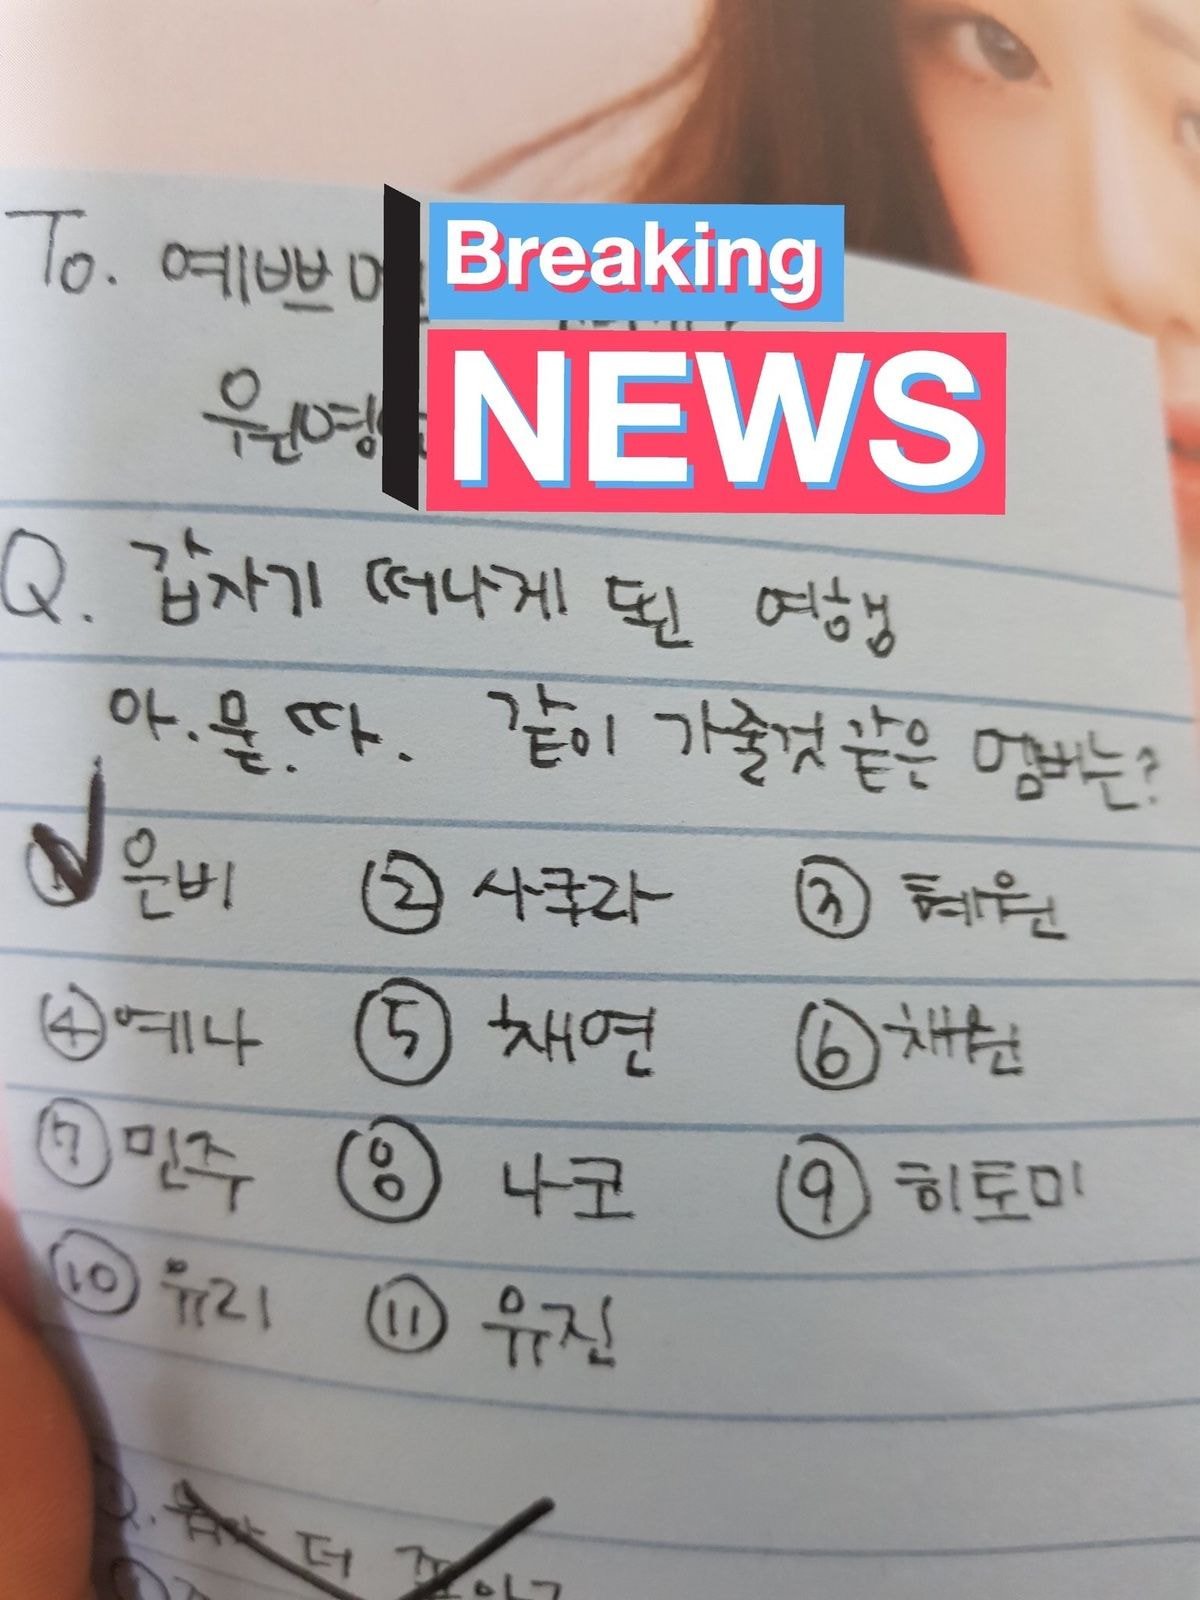 To. 예쁘
Breaking
NEWS
우원영
Q. 갑자기 떠나게 된 여행
아.묻.따. 같이 가줄것 같은 멤버는?
① 은비 ② 사쿠라 ③ 혜원
④ 예나 ⑤ 채연 ⑥ 채원
⑦ 민주 ⑧ 나코 ⑨ 히토미
⑩ 유리 ⑪ 유진
Q. 더